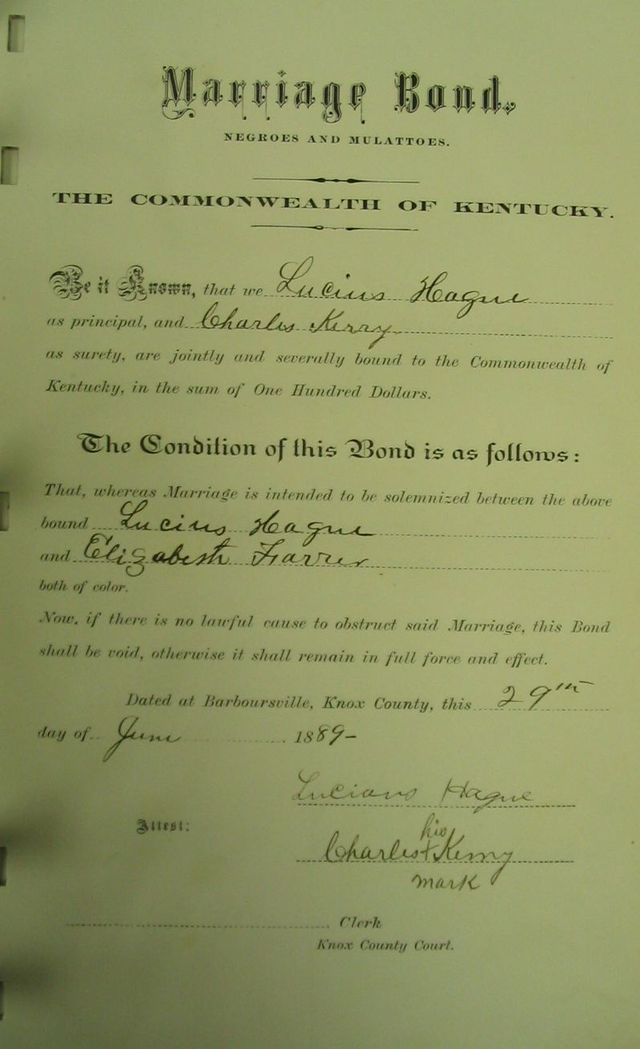 Marriage Bond.
NEGROES AND MULATTOES.
THE COMMONWEALTH OF KENTUCKY.
Be it Known, that we Lucius Hague
as principal, and Charles Kerry
as surety, are jointly and severally bound to the Commonwealth of
Kentucky, in the sum of One Hundred Dollars.
The Condition of this Bond is as follows:
That, whereas Marriage is intended to be solemnized between the above
bound Lucius Hague
and Elizabeth Farris
both of color.
Now, if there is no lawful cause to obstruct said Marriage, this Bond
shall be void, otherwise it shall remain in full force and effect.
Dated at Barboursville, Knox County, this 29th
day of June 1889-
Hague
Attest:
his
Charles x
mark
Clerk
Knox County Court.